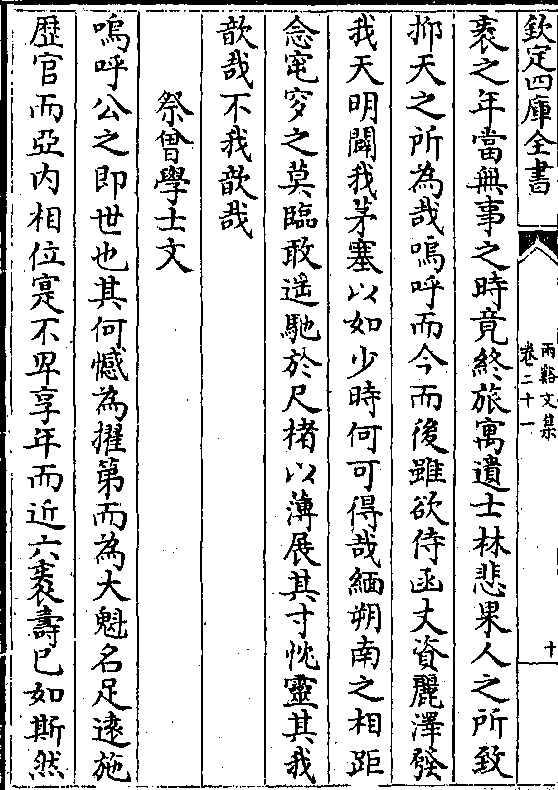 欽定四庫全書
兩谿文集
卷二十一
十
袠之年當無事之時竟終旅寓遺士林悲果人之所致
抑天之所為哉嗚呼而今而後雖欲侍函丈資麗澤發
我天明闢我茅塞以如少時何可得哉緬朔南之相距
念窀穸之莫臨敢遥馳於尺楮以薄展其寸忱靈其我
歆哉不我歆哉
祭曾學士文
嗚呼公之即世也其何憾為擢第而為大魁名足遠施
歴官而亞内相位寔不卑享年而近六袠壽已如斯然